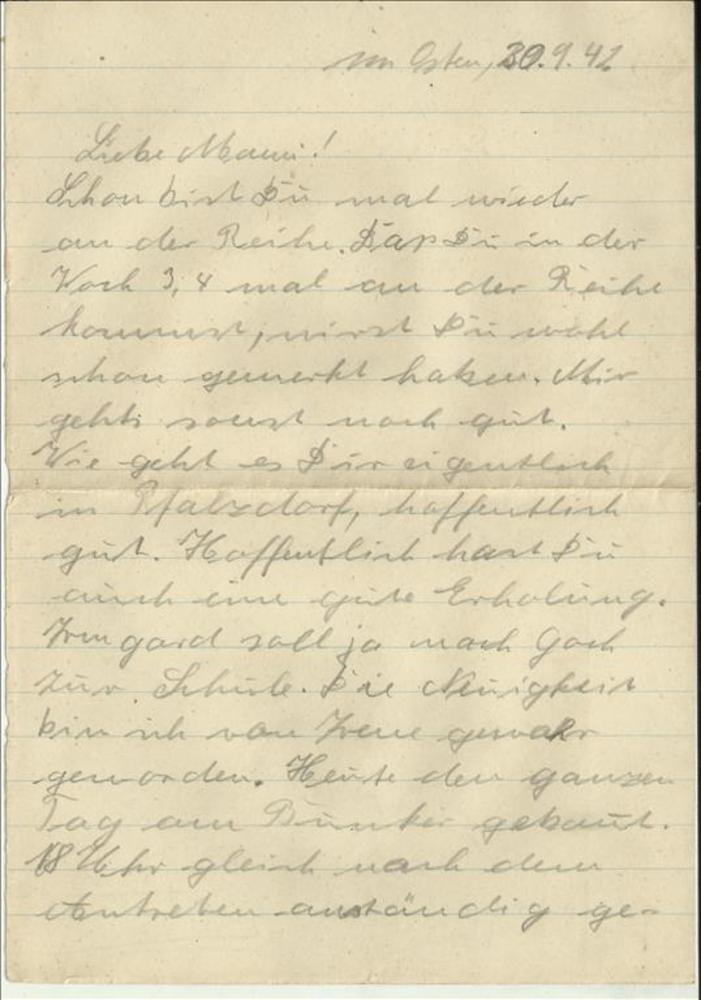 Im Osten, 30.9.42
Liebe Mami!
Schon bist Du mal wieder
an der Reihe. Daß Du in der
Woch 3, 4 mal an der Reihe
kommst, wirst Du wohl
schon gemerkt haben. Mir
gehts sonst noch gut.
Wie geht es Dir eigentlich
in Pfalzdorf, hoffentlich
gut. Hoffentlich hast Du
auch eine gute Erholung.
Irmgard soll ja nach Goch
zur Schule. Die Neuigkeit
bin ich von Irene gewahr
geworden. Heute den ganzen
Tag am Bunker gebaut.
18 Uhr gleich nach dem
Antreten anständig ge-